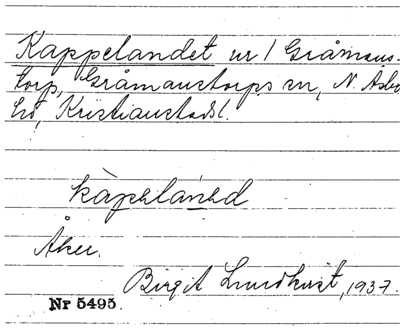 Kappelandet nr 1 Gråmans-
torp, Gråmanstorps sn, N. Åsbo
hd, Kristianstads l.
kàpelànɛd
Åker.
Birgit Lundkvist, 1937.
Nr 5495.